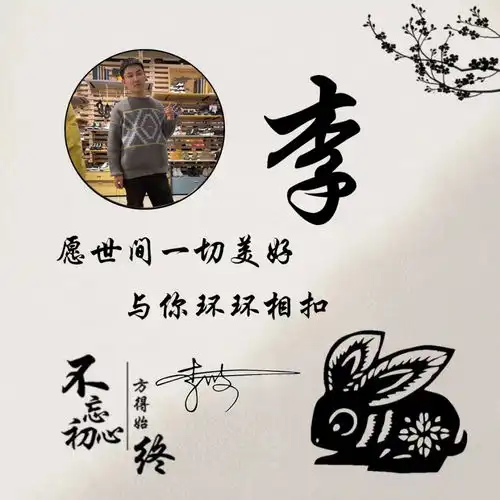 李
愿世间一切美好
与你环环相扣
不忘初心
方得始终